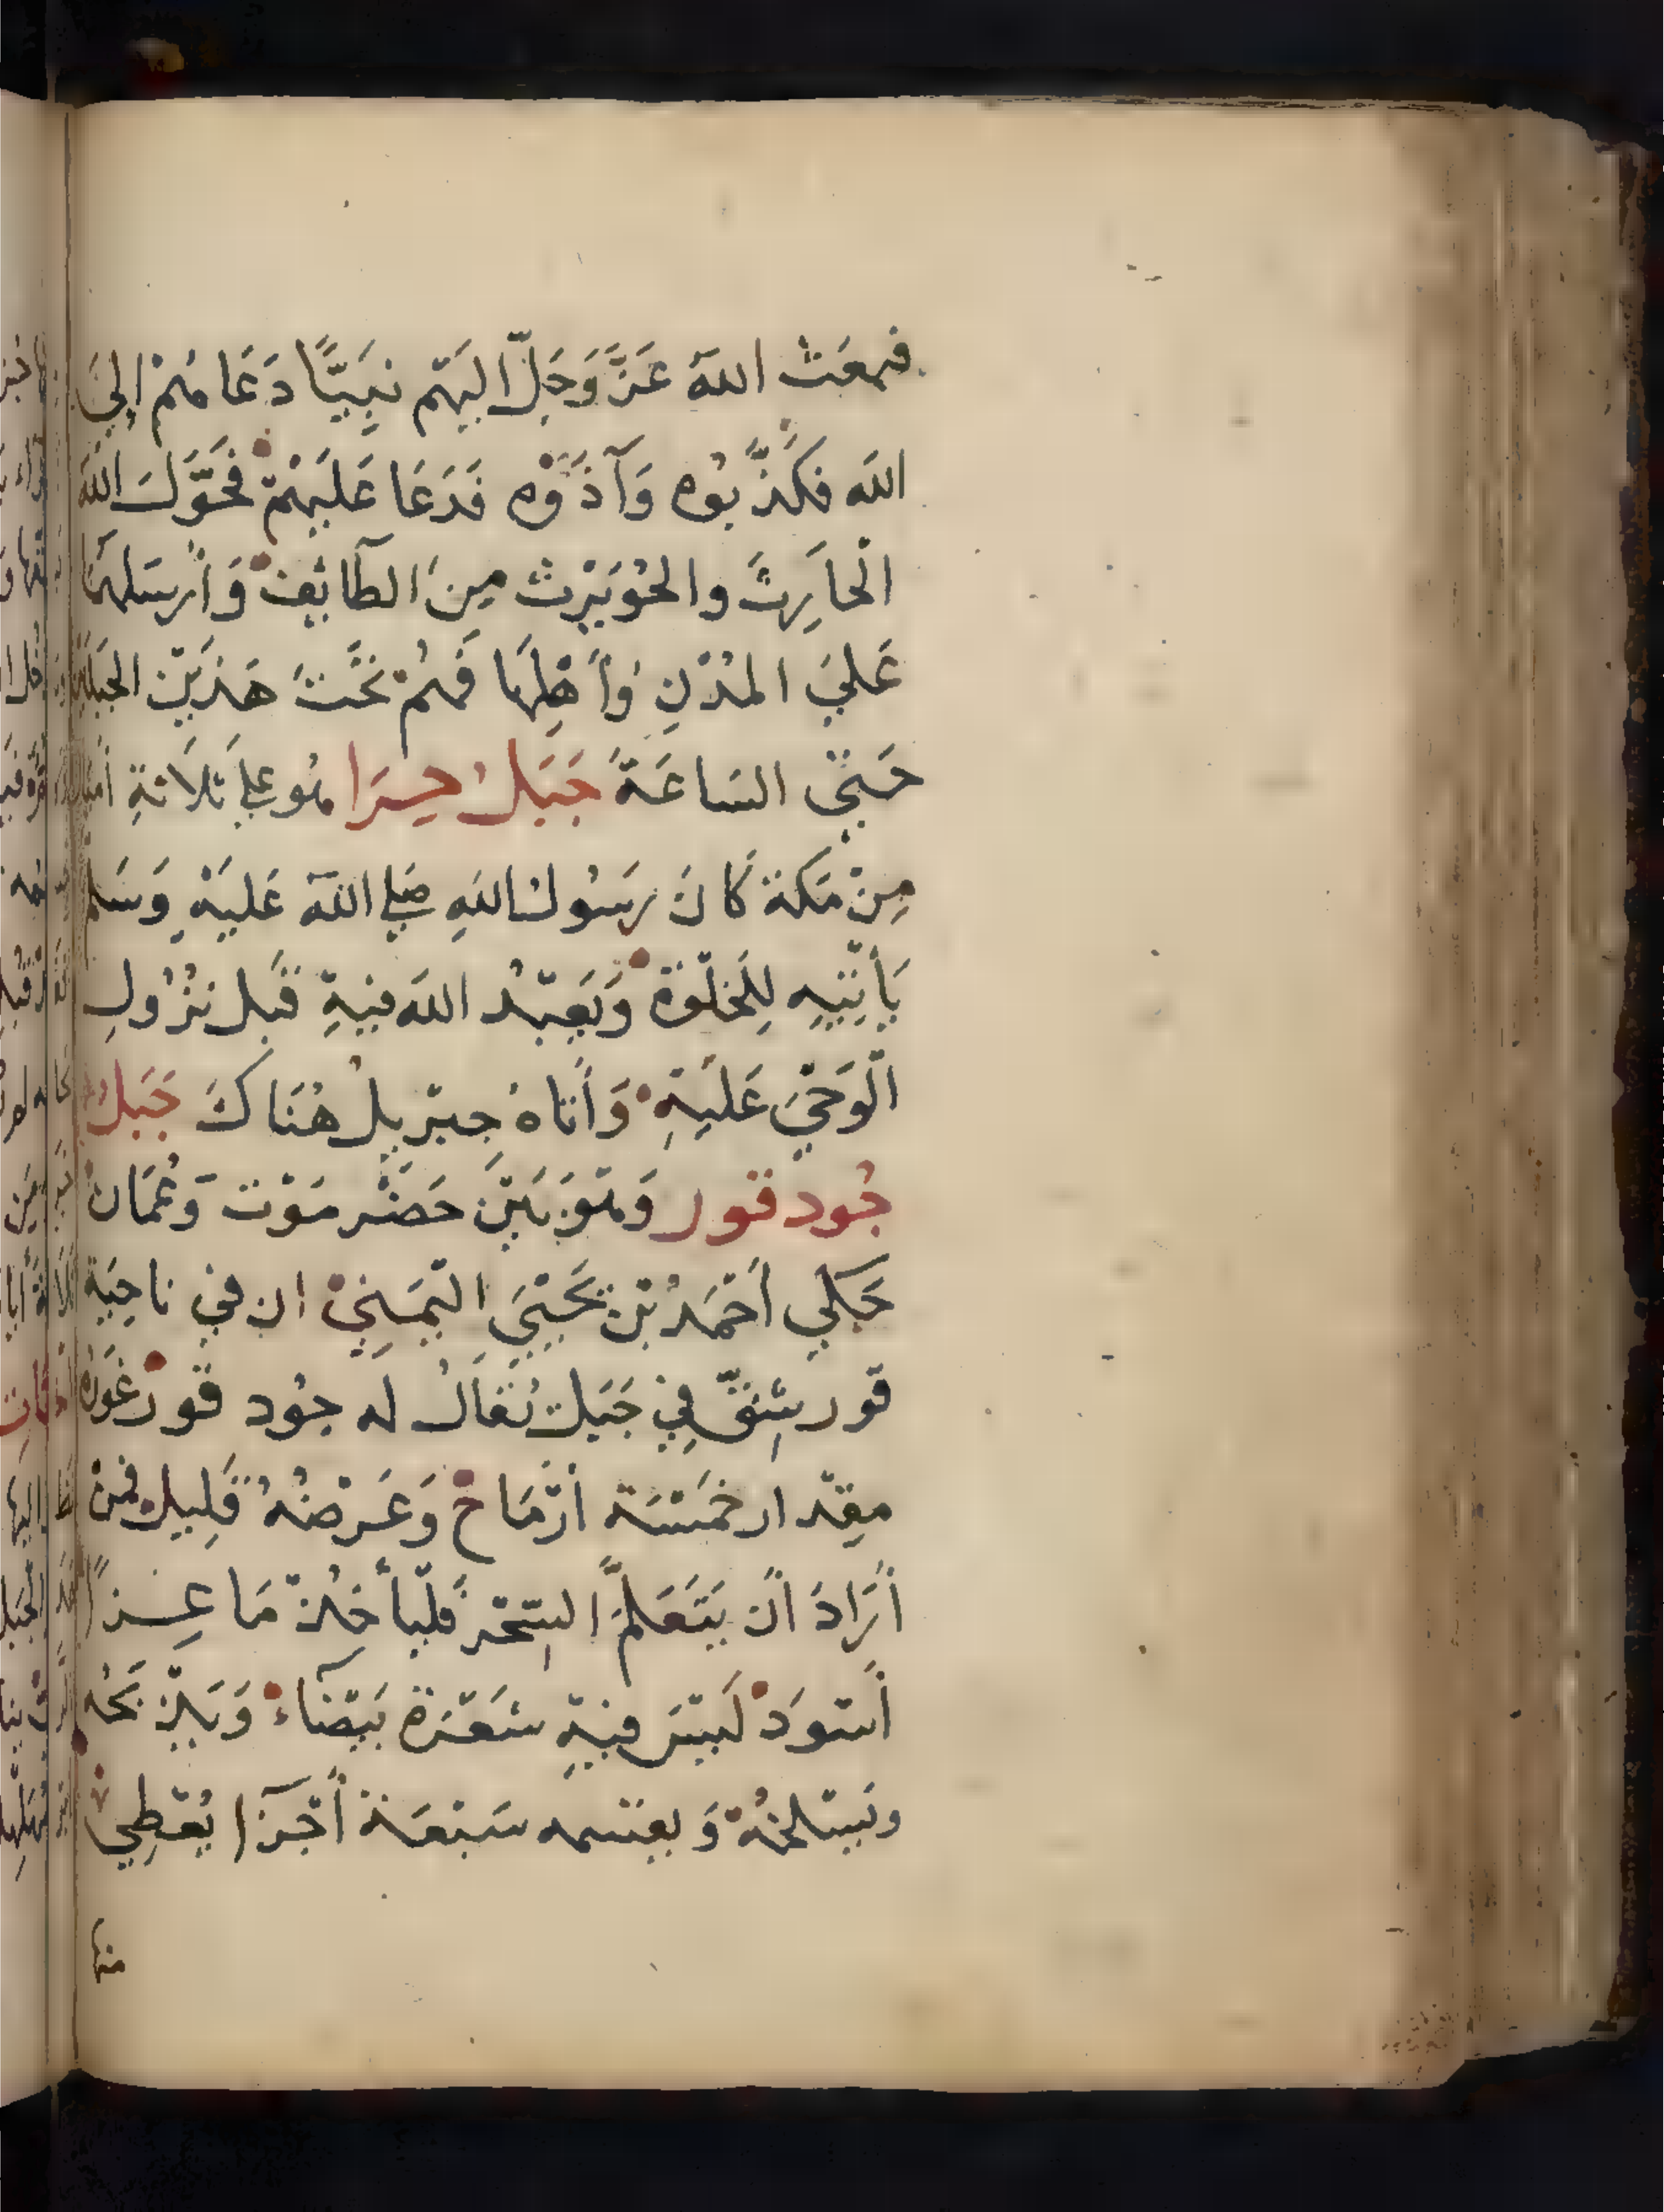 فبعَث اللهُ عَزَّ وَجَلَّ اليْهم نَبِيًّا دَعَاهُمْ الِيَ
الله فكَذَّبُوه وَآذَوْه فَدَعَا عَلَيْهِمْ فَحَوَّلَ اللهُ
الْحارِثَ والحُوَيْرِث مِنَ الطآئِفْ وَأرْسَلهُمَا
عَليَ المُدْنِ وَأهْلِهَا فَهُمْ تَحْتَ هَذَيْنِ الجبَلَيْن
حَتيّ السَاعَةَ جَبَلُ حِرَا هُو علي ثلَاثةِ أميال
مِنْ مَكة كَانَ رَسُولُ اللهِ صَلي اللهُ عَليَهِ وَسَلم
يَأتِيهِ لِلخَلْوَة وَيَعبُد الله فيهِ قَبل نزُولِ
الْوَحْيَ عَليْهِ وَأتاهُ جِبْرِيلُ هُنَاكَ جَبَلُ
جُود قور وَهوَ بَيْنَ حَضْرمَوْت وَعُمَانْ
حَكي أحْمَدُ بْنُ يَحْيَيَ اليَمَنِيْ ان في ناحِيَة
قور شِقّ فِي جَبَل يُقَالُ له جُود قورْ غَوْرُه
مِقدار خمَسْة أرْمَاح وَعَرْضُهُ قَلِيل فمَنْ
أرَادَ أن يَتَعَلّمَ السِّحْرَ فليَأخُذْ مَاعِزاً
أسْوَدْ لَيْسَ فيهِ شعَرَة بَيْضَاءْ وَيَذْبَحُه
ويَسْلخُهْ وَيقسمه سَبْعَة أجْزآءا يُعْطِي
منها